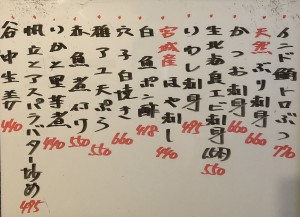 インド鮪トロぶつ 770
天然ぶり刺身 660
かつお刺身 660
生北海良エビ刺身(5本) 550
いわし刺身 495
宮城産ほや刺し 440
白魚ポン酢 418
穴子白焼き 660
稚アユ天ぷら 550
赤魚煮付け 550
いかと里芋煮 440
帆立とアスパラバター炒め 495
谷中生姜 440